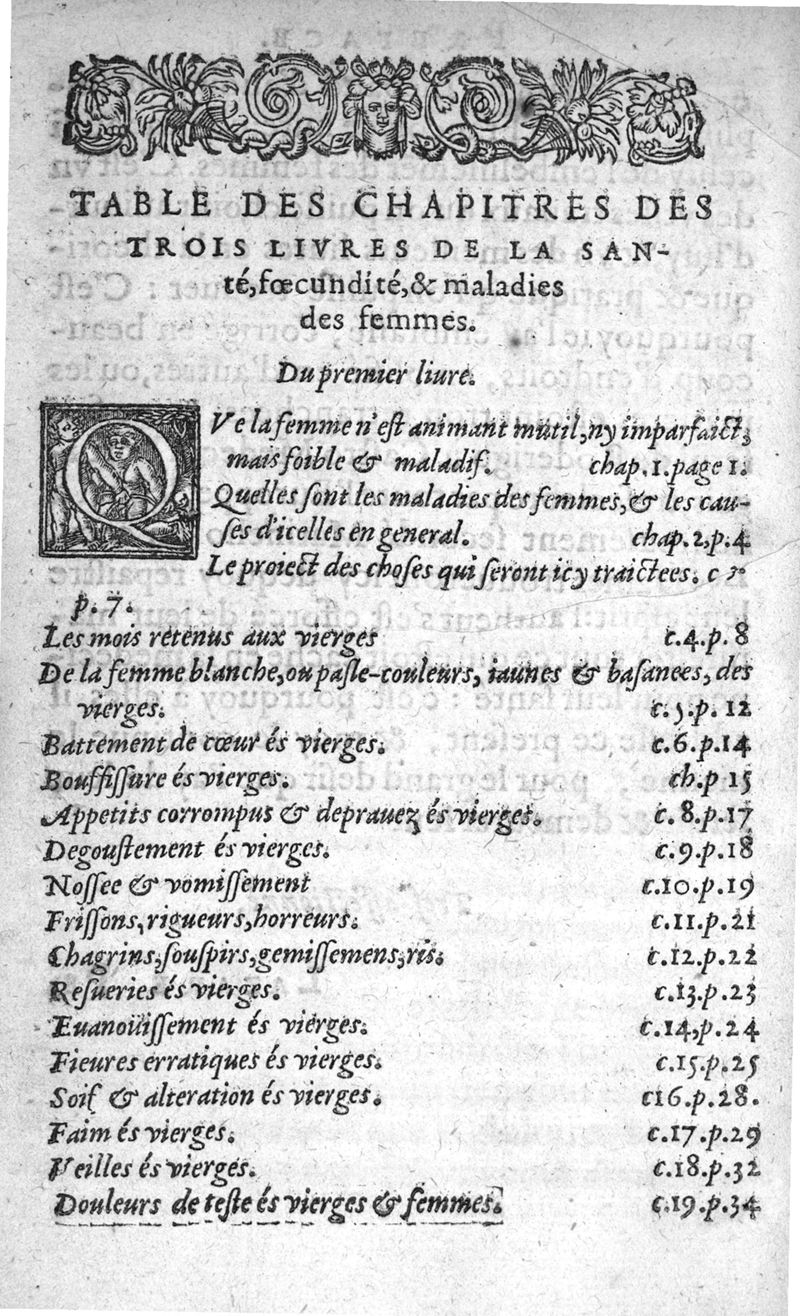 TABLE DES CHAPITRES DES
TROIS LIVRES DE LA SAN-
té, fœcundité, & maladies
des femmes.
Du premier liure.
QVe la femme n'eſt animant mutil, ny imparfaict,
mais foible & maladif. chap. 1. page 1.
Quelles ſont les maladies des femmes, & les cau-
ſes d'icelles en general. chap. 2, p. 4
Le proiect des choſes qui ſeront icy traictees. c 3.
p. 7.
Les mois retenus aux vierges c. 4. p. 8
De la femme blanche, ou paſle-couleurs, iaunes & baſanees, des
vierges. c. 5. p. 12
Battement de cœur és vierges. c. 6. p. 14
Bouffiſſure és vierges. ch. p 15
Appetits corrompus & deprauez és vierges. c. 8. p. 17
Degouſtement és vierges. c. 9. p. 18
Noſſee & vomiſſement c. 10. p. 19
Friſſons, rigueurs, horreurs. c. 11. p. 21
Chagrins, ſouſpirs, gemiſſemens, ris. c. 12. p. 22
Reſueries és vierges. c. 13. p. 23
Euanoüiſſement és vierges. c. 14, p. 24
Fieures erratiques és vierges. c. 15. p. 25
Soif & alteration és vierges. c16. p. 28.
Faim és vierges. c. 17. p. 29
Veilles és vierges. c. 18. p. 32
Douleurs de teſte és vierges & femmes. c. 19. p. 34